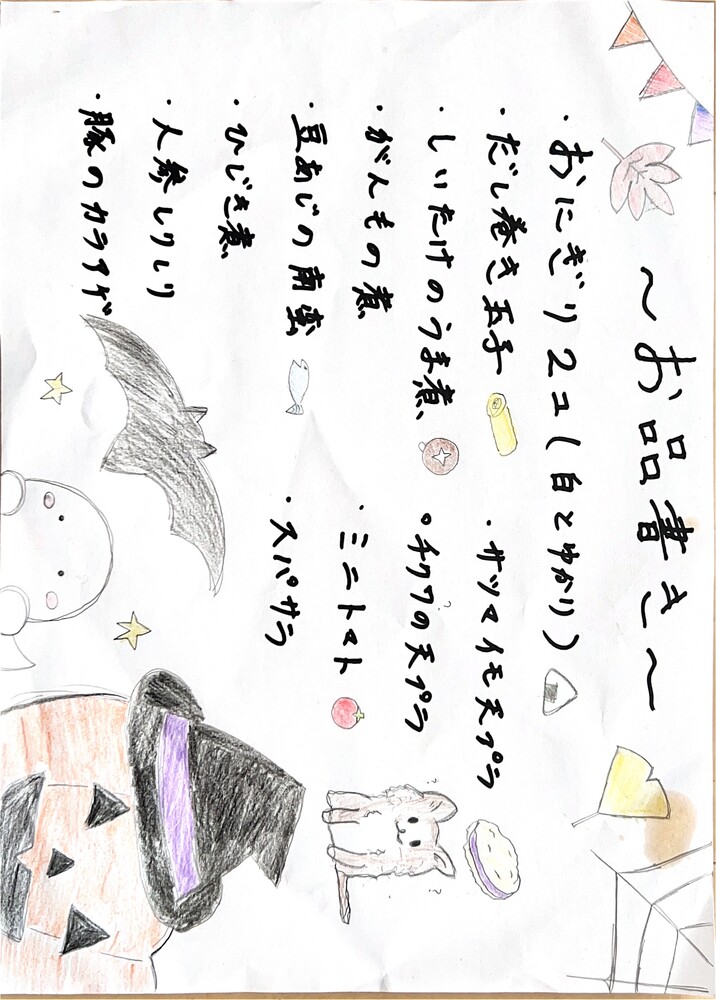 ～お品書き～
・おにぎり2コ(白とゆかり)
・だし巻き玉子
・しいたけのうま煮
・がんもの煮
・豆あじの南蛮
・ひじき煮
・人参しりしり
・豚のカラアゲ
・サツマイモ天プラ
・チクワの天プラ
・ミニトマト
・スパサラ